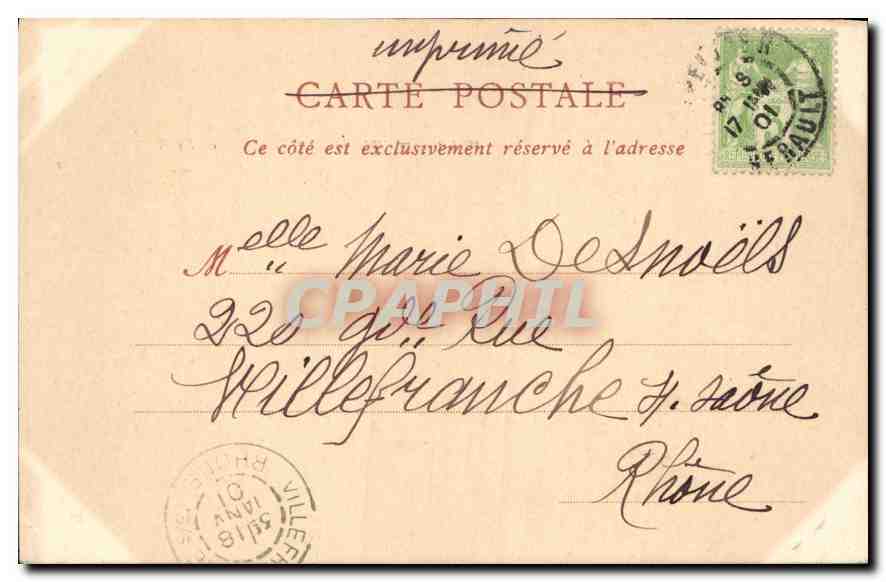 imprimé
CARTE POSTALE
Ce côté est exclusivement réservé à l'adresse
17 JANV 01
HERAULT
Melle Marie Desnoëls
CPAPHIL
220 gde Rue
Villefranche s/. Saône
Rhône
RHONE
VILLEFR
18
JANV
01